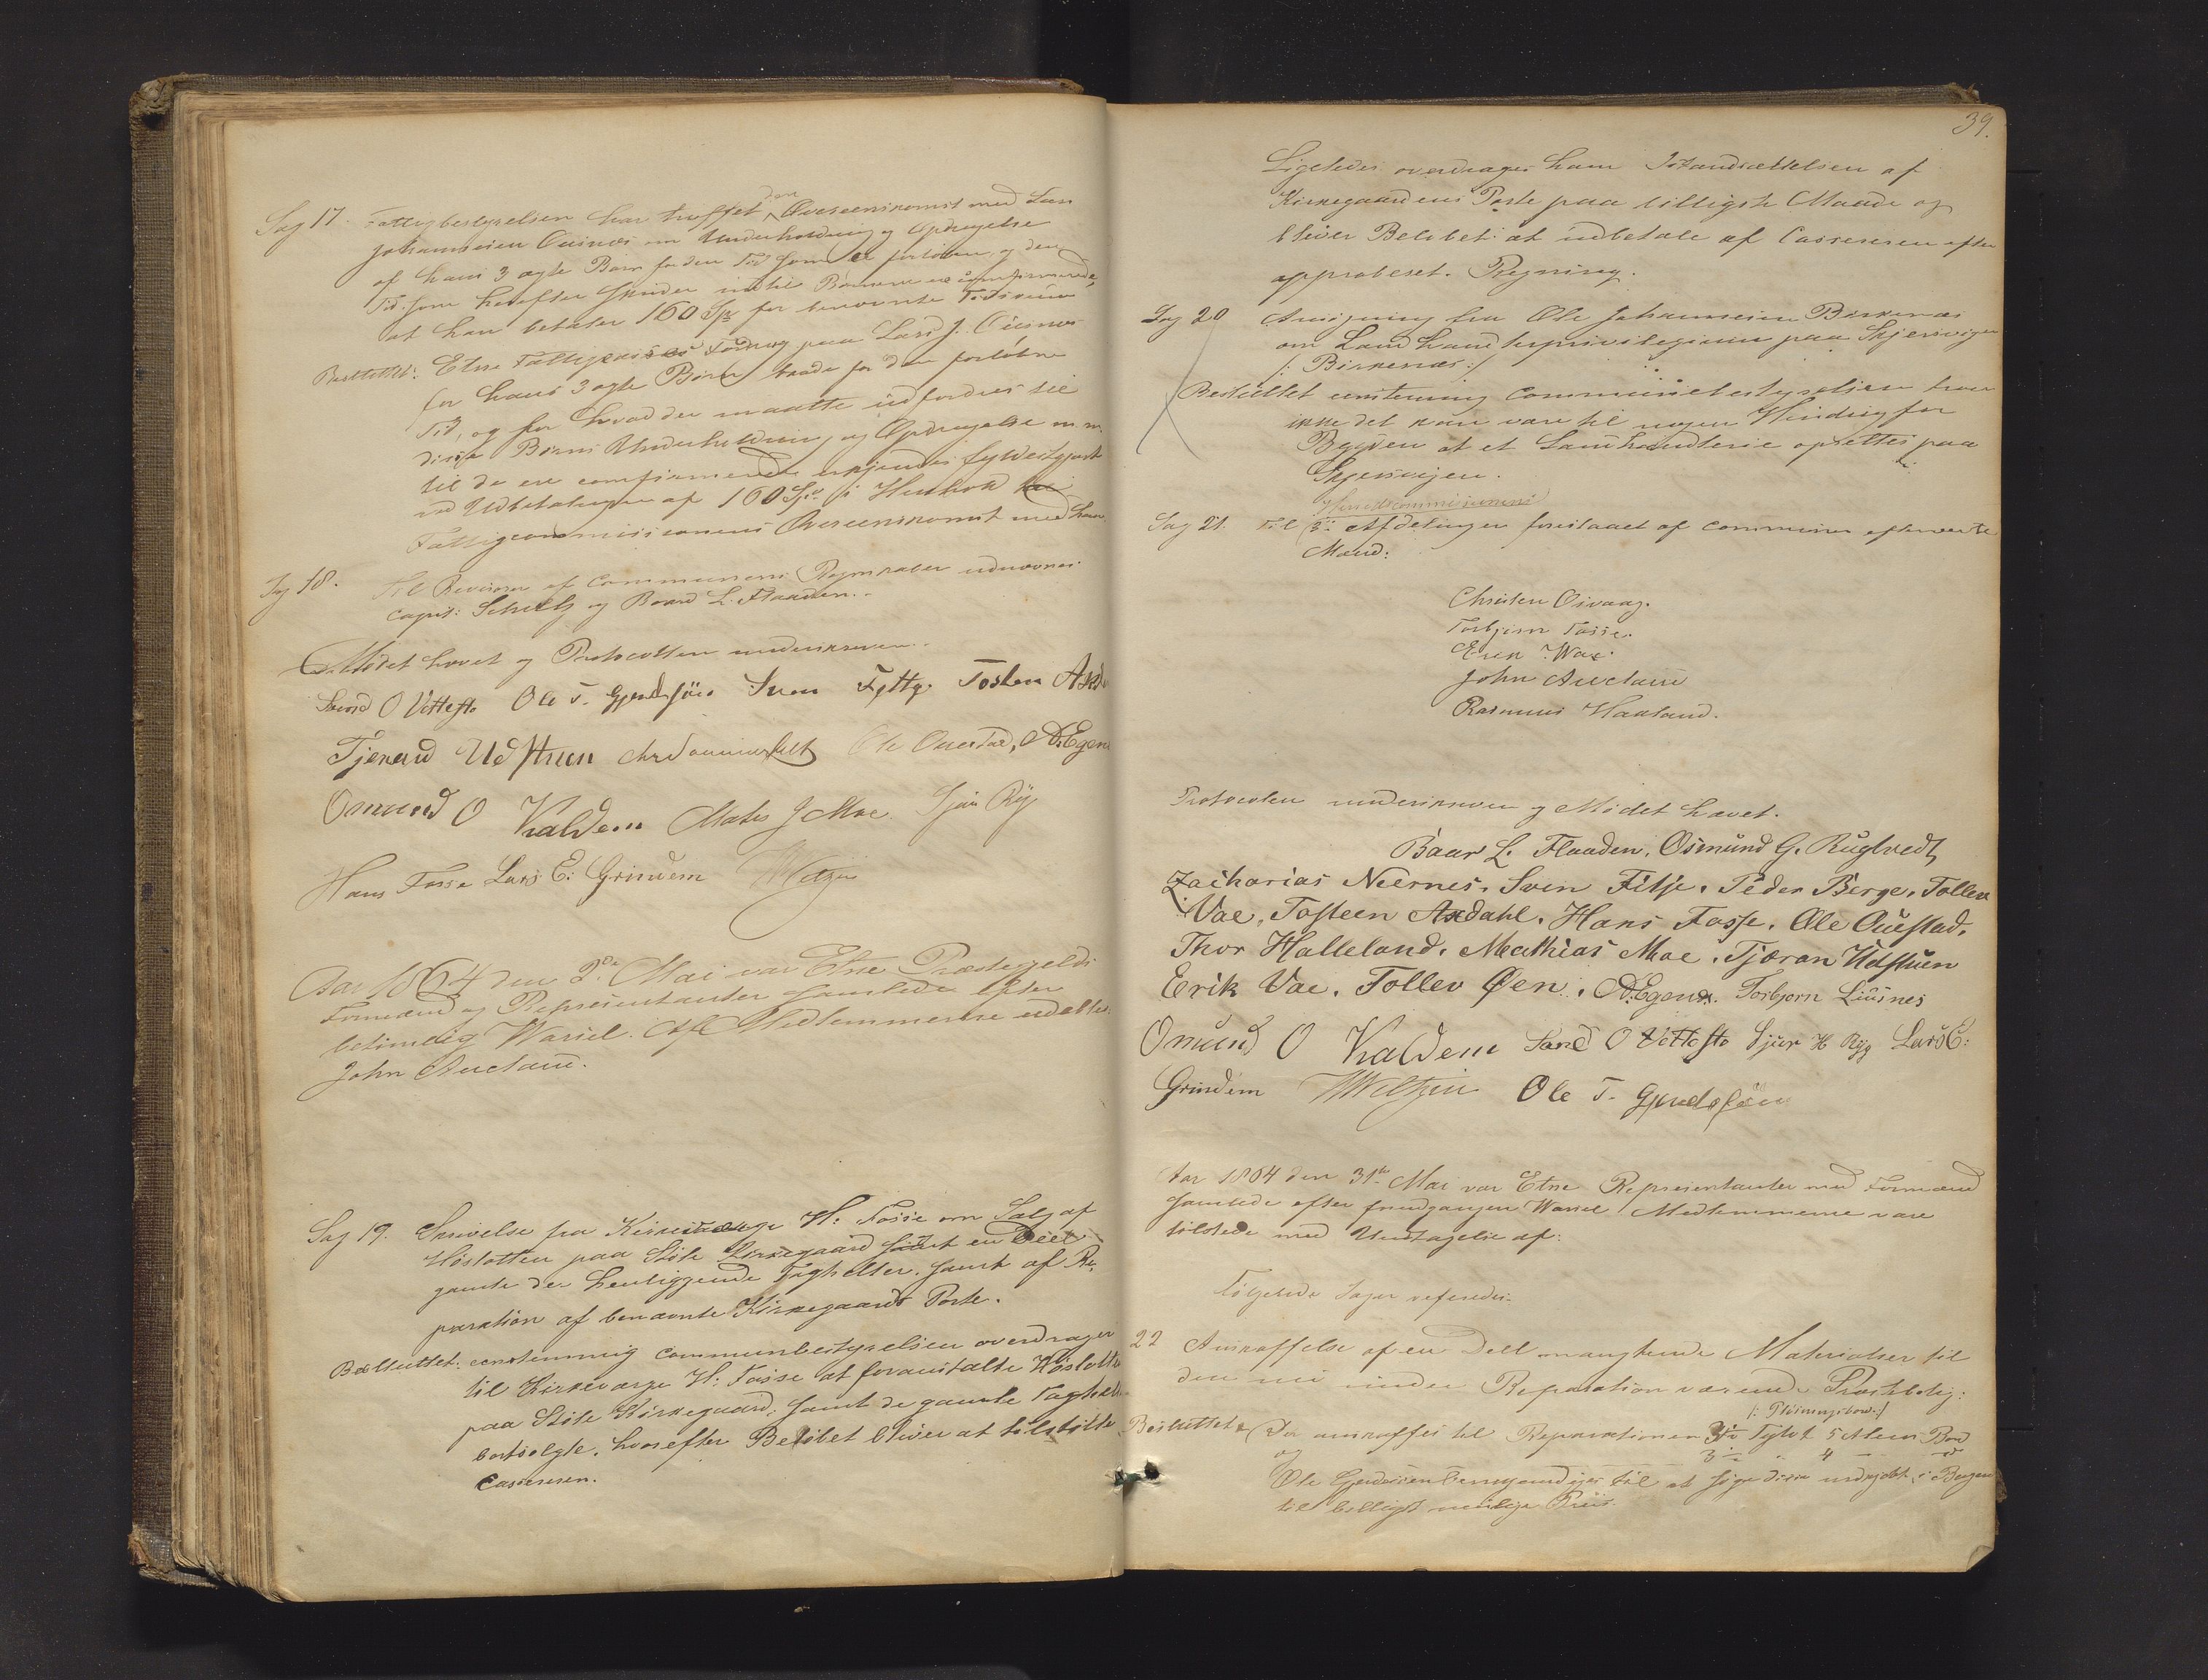 Sag 17. Fattigbestyrelsen har truffet den Overeenskomst med Lars
Johannesen Ousnes om Underholdning og Opdragelse
af hans 3 ægte Børn for den Tid som er forløben, og den
Tid som herefter skrider indtil Børnene ere confirmerede,
at han betaler 160 Spd for benævnte Tidsrum
Besluttet: Etne Fattigcasses Fordring paa Lars J. Ousnes
for hans 3 ægte Børn baade for den forløbne
Tid, og for hvad der maatte udfordres til
disse Børns Underholdning og Opdragelse m. m.
til de ere confirmerede erkjendes fyldestgjort
ved Udbetalingen af 160 Spd i Henhold til
Fattigcommissionens Overeenskomst med ham.
Sag 18. Til Revisorer af Communens Regnskaber udnævnes
Capit: Schultz og Baard L. Flaaden.
Mødet hævet og Protocollen underskreven.
Svend O Vettefte Ole T. Gjerdsjøen Sven Fytty Tosten Axda
Tjerand Udstuen Ole Ouestad, O.D. Egenæ
Omund O Kaldem Mates J Moe Sjur Ryg
Hans Fosse Lars E: Grindem Weltzin
Aar 1864 den 2de Mai var Etne Præstegjelds
Formænd og Repræsentanter samlede efter
betimelig Warsel. Af Medlemmerne udeblev
John Aueland.
Sag 19. Skrivelse fra Kirkeværge H: Fosse om Salg af
Høslotten paa Støle Kirkegaard samt en Deel
gamle der henliggende Taghelter, samt af Re-
paration af benævnte Kirkegaards Porte.
Besluttet: eenstemmig Communbestyrelsen overdrager
til Kirkeværge H: Fosse at foranstalte Høslotten
paa Støle Kirkegaard, samt de gamle Taghelter
bortsolgte, hvorefter Beløbet bliver at tilstille
Cassereren.
39.
Ligeledes overdrages ham Istandsættelsen af
Kirkegaardens Porte paa billigste Maade og
bliver Beløbet at udbetale af Cassereren efter
approberet Regning.
Sag 20 Ansøgning fra Ole Johannesen Birkenæs
om Landhandlerprivilegium paa Skjersvigen
/: Birkenæs :/
Besluttet eenstemmig Communebestyrelsen troer
ikke det kan være til nogen Hindring for
Bygden at et Landhandlerie oprettes paa
Skjersvigen.
Herredscommissionens
Sag 21. Til 3die Afdelingen foreslaaet af Communen efternævnte
Mænd:
Christen Osvaag.
Torbjørn Fosse.
Erik Wae.
John Aueland
Rasmus Haaland.
Protocolen underskreven og Mødet hævet.
Baar L. Flaaden, Osmund G. Rugtvedt,
Zacharias Neernes, Sven Fitje, Peder Berge, Tollev
Vae, Tosteen Axdahl, Hans Fosse, Ole Ouestad,
Thor Halleland, Mathias Moe, Tjeran Udstuen
Erik Vae, Tollev Øen, O.D. Egenæs. Torbjørn Liusnes
Omund O Kaldem Svend O Vettefte Sjur H Ryg Lars E:
Grindem Weltzin Ole T. Gjerdsjøen
Aar 1864 den 31te Mai var Etne Repræsentanter med Formænd
samlede efter foregangen Warsel Medlemmerne vare
tilstede med Undtagelse af:
Følgende Sager refereredes
22 Anskaffelse af en Deel manglende Materialier til
den nu under Reparation værende Præstebolig:
/: Pløiningsbord :/
Besluttet: Der anskaffes til Reparationen 3½ Tylvt 5 Alens Bord
og 3½ - 4 - d
Ole Gjerdesøen bemyndiges til at søge disse indkjøbt i Bergen
til billigst mulige Priis